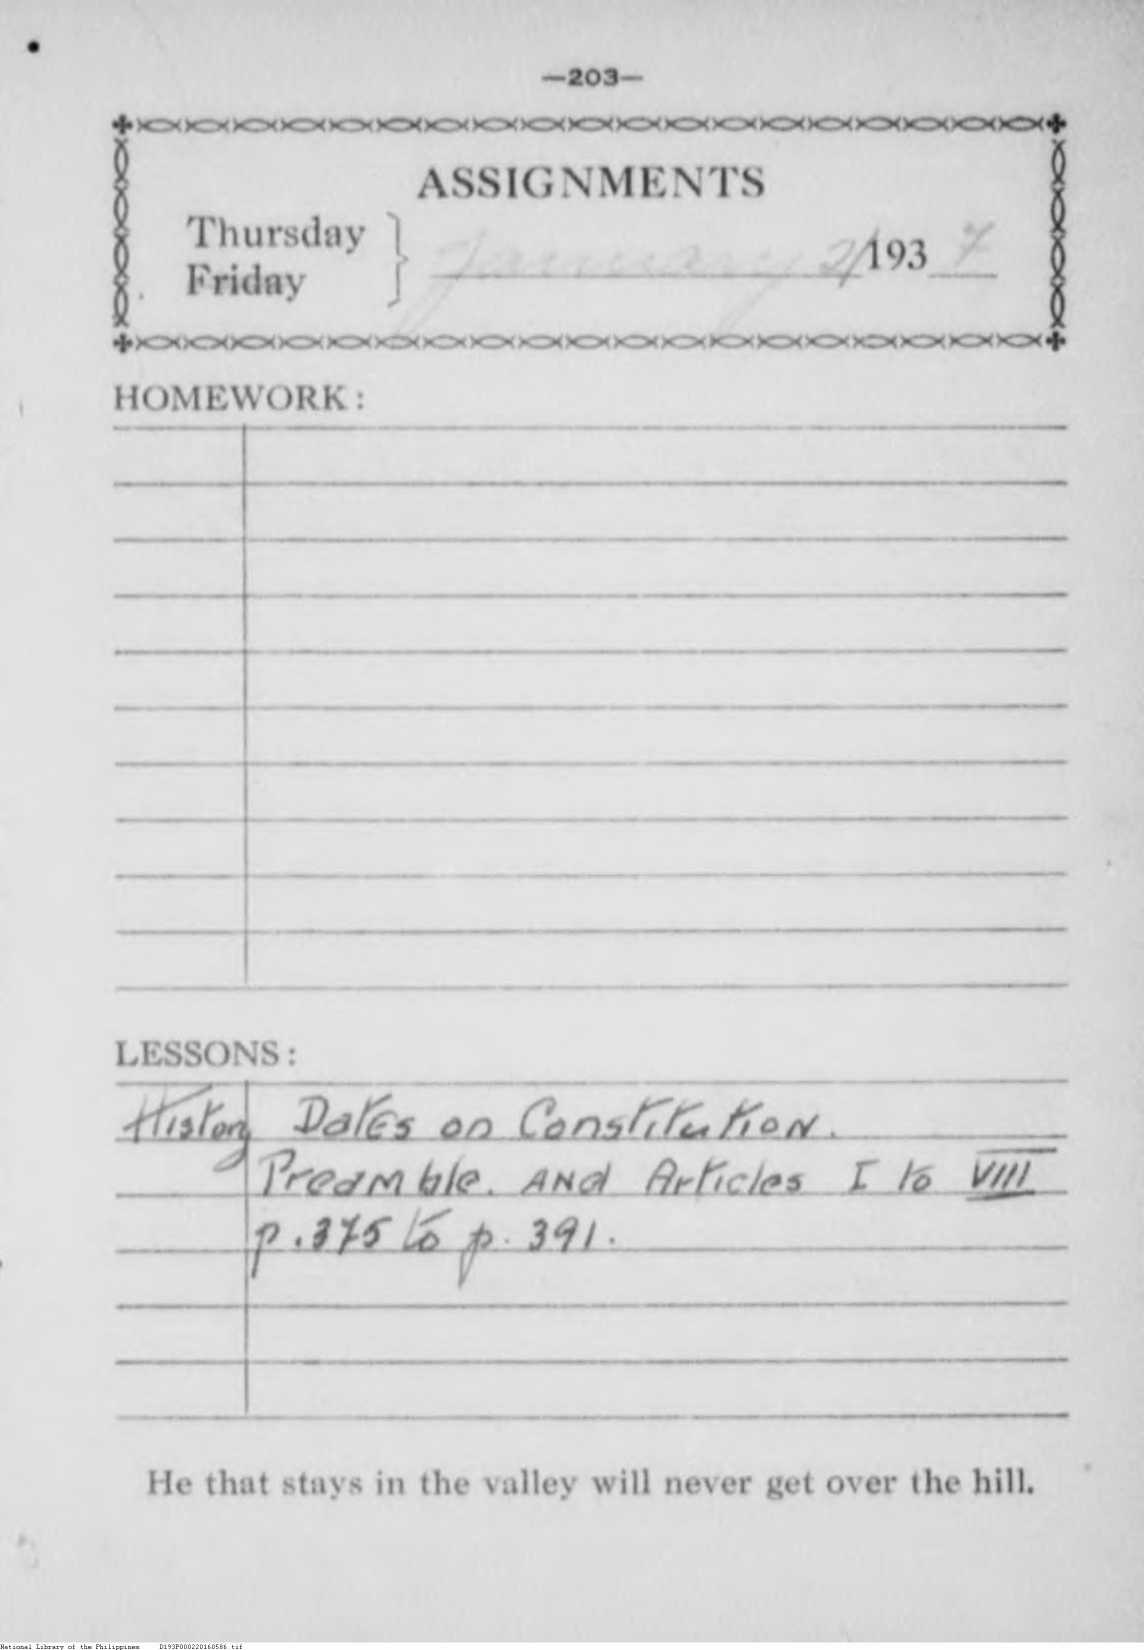 —203—
ASSIGNMENTS
Thursday
Friday
January 21 193 7
HOMEWORK:
LESSONS:
History Dates on Constitution.
Preamble. AND Articles I to VIII
p. 375 to p. 391.
He that stays in the valley will never get over the hill.
National Library of the Philippines D193P000220160586 tif